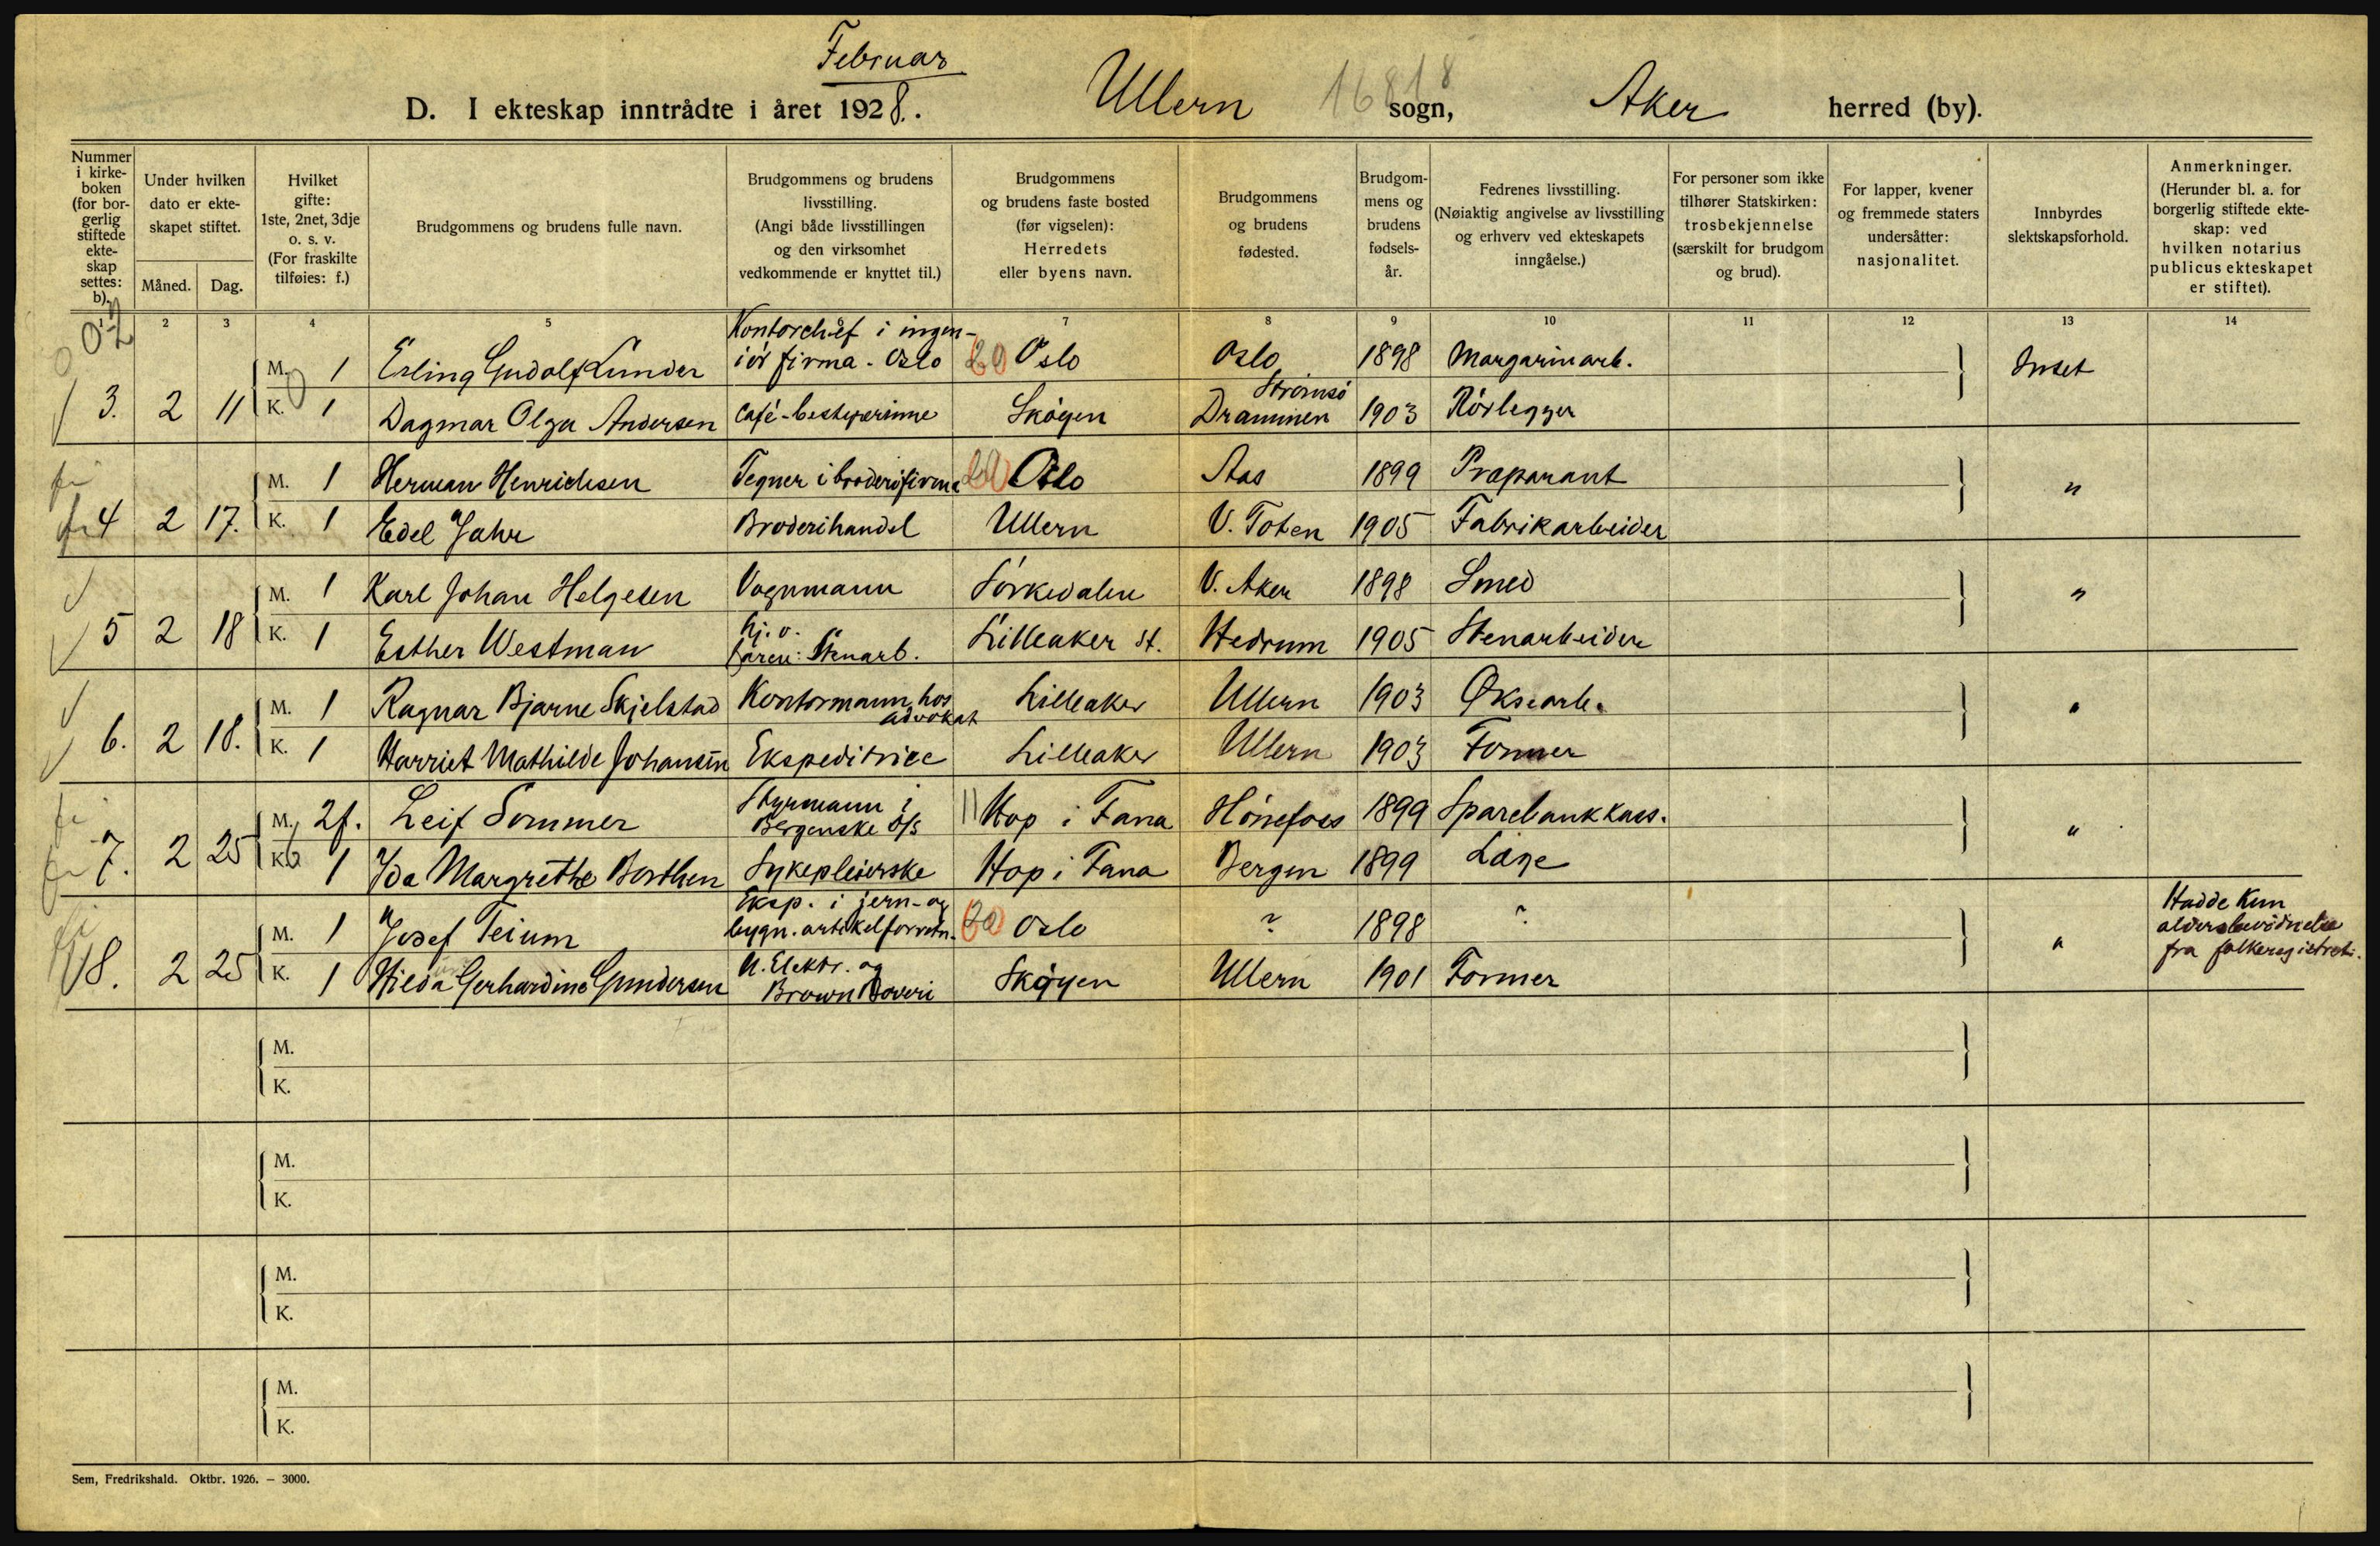 Februar
D. I ekteskap inntrådte i året 1928. Ullern 16818 sogn, Aker herred (by).
Nummer i kirke-boken (for bor-gerlig stiftede ekte-skap settes: b).
Under hvilken dato er ekte-skapet stiftet.
Måned. Dag.
Hvilket gifte: 1ste, 2net, 3dje o. s. v. (For fraskilte tilføies: f.)
Brudgommens og brudens fulle navn.
Brudgommens og brudens livsstilling. (Angi både livsstillingen og den virksomhet vedkommende er knyttet til.)
Brudgommens og brudens faste bosted (før vigselen): Herredets eller byens navn.
Brudgommens og brudens fødested.
Brudgom-mens og brudens fødsels-år.
Fedrenes livsstilling. (Nøiaktig angivelse av livsstilling og erhverv ved ekteskapets inngåelse.)
For personer som ikke tilhører Statskirken: trosbekjennelse (særskilt for brudgom og brud).
For lapper, kvener og fremmede staters undersåtter: nasjonalitet.
Innbyrdes slektskapsforhold.
Anmerkninger. (Herunder bl. a. for borgerlig stiftede ekte-skap: ved hvilken notarius publicus ekteskapet er stiftet).
1 2 3 4 5 6 7 8 9 10 11 12 13 14
M. 1 Erling Gudolf Lunder Kontorchef i ingen-iör firma - Oslo 20 Oslo Oslo 1898 Margarinarb. Intet
3. 2 11 K. 1 Dagmar Olga Andersen Café-bestyrerinne Skøyen Strømsö Drammen 1903 Rørlegger
M. 1 Herman Henrichsen Tegner i broderifirma 20 Oslo Aas 1899 Præparant "
4 2 17. K. 1 Edel Jahr Broderihandel Ullern V. Toten 1905 Fabrikarbeider
M. 1 Karl Johan Helgesen Vognmann Sørkedalen V. Aker 1898 Smed "
5 2 18 K. 1 Esther Westman Hj. v. faren: Stenarb. Lilleaker st. Hedrum 1905 Stenarbeider
M. 1 Ragnar Bjarne Skjelstad Kontormann hos advokat Lilleaker Ullern 1903 Øksearb. "
6. 2 18. K. 1 Harriet Mathilde Johansen Ekspeditrice Lilleaker Ullern 1903 Former
M. 2f. Leif Sommer Styrmann i Bergenske D/S 11 Hop i Fana Hönefoss 1899 Sparebankkass. "
7. 2 25 K. 1 Ida Margrethe Borthen Sykepleierske Hop i Fana Bergen 1899 Læge
M. 1 Josef Teium Eksp. i jern- og bygn. artikelforretn. 20 Oslo ? 1898 ? " Hadde kun aldersbevidnelse fra folkeregistret.
8. 2 25 K. 1 Hilda Gerhardine Gundersen N. Elektr. og Brown Boveri Skøyen Ullern 1901 Former
M.
K.
M.
K.
M.
K.
M.
K.
Sem, Fredrikshald. Oktbr. 1926. – 3000.